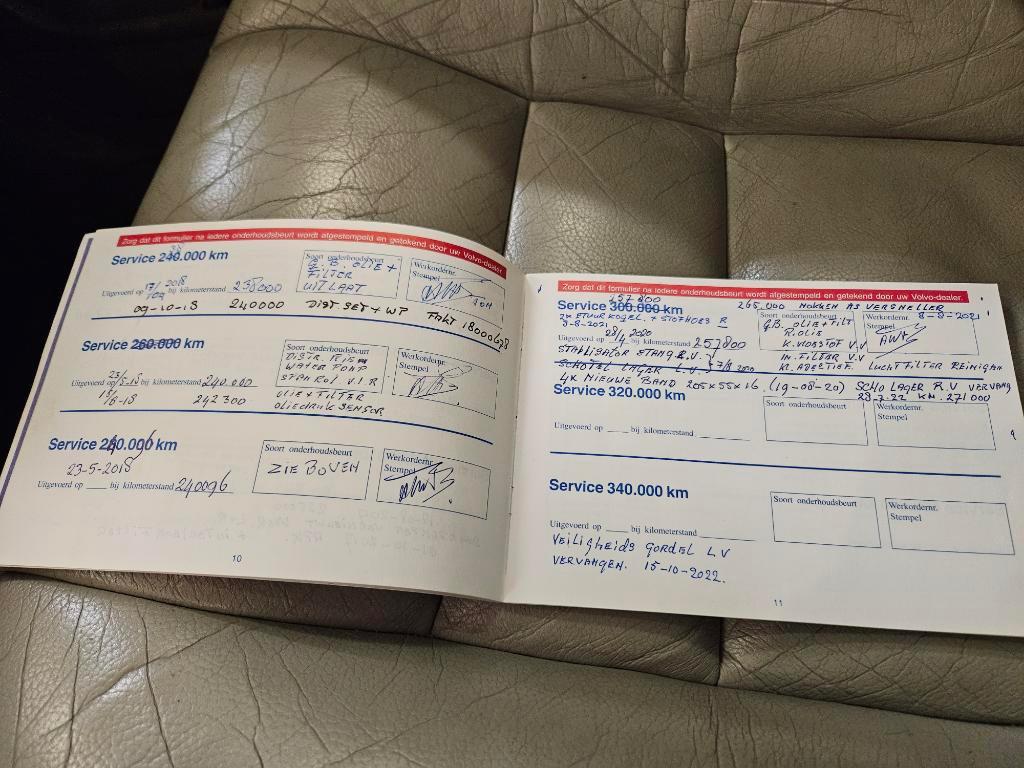 Zorg dat dit formulier na iedere onderhoudsbeurt wordt afgestempeld en getekend door uw Volvo-dealer.
Service 240.000 km
Soort onderhoudsbeurt
G.B. OLIE +
FILTER
UITLAAT
Werkordernr.
Stempel
Uitgevoerd op 2018 bij kilometerstand 238000
09-10-18 240000 DIST SET + WP FAKT
Service 260.000 km
Soort onderhoudsbeurt
DISTR. RIEM
WATER POMP
V.I.R
OLIE + FILTER
OLIEDRUK SENSOR
Werkordernr.
Stempel
Uitgevoerd op bij kilometerstand 240.000
16-18 242300
Service km
23-5-2018
Uitgevoerd op bij kilometerstand 240096
Soort onderhoudsbeurt
ZIE BOVEN
Werkordernr.
Stempel
10
Zorg dat dit formulier na iedere onderhoudsbeurt wordt afgestempeld en getekend door uw Volvo-dealer.
257800
Service 300.000 km
265.000 HOKKEN AS VERSNELLER
2x STUURKOGEL + STOFHOES R
8-8-2021
Soort onderhoudsbeurt
G.B. OLIE + FILT
R.OLIS
K. VLOEISTOF V.V
IN. FILTER V.V
Werkordernr. 8-8-2021
Stempel
Uitgevoerd op 28/4 2020 bij kilometerstand 257800
STABILISATOR STANG R.V.
SCHOTEL LAGER L.V
LUCHT FILTER REINIGEN
4x NIEUWE BAND 205x55x16 (19-08-20) SCHO LAGER R.V VERVANG
28.7.22 KM. 271000
Service 320.000 km
Soort onderhoudsbeurt
Werkordernr.
Stempel
Uitgevoerd op bij kilometerstand
Service 340.000 km
Soort onderhoudsbeurt
Werkordernr.
Stempel
Uitgevoerd op bij kilometerstand
VEILIGHEIDS GORDEL L V
VERVANGEN. 15-10-2022.
11